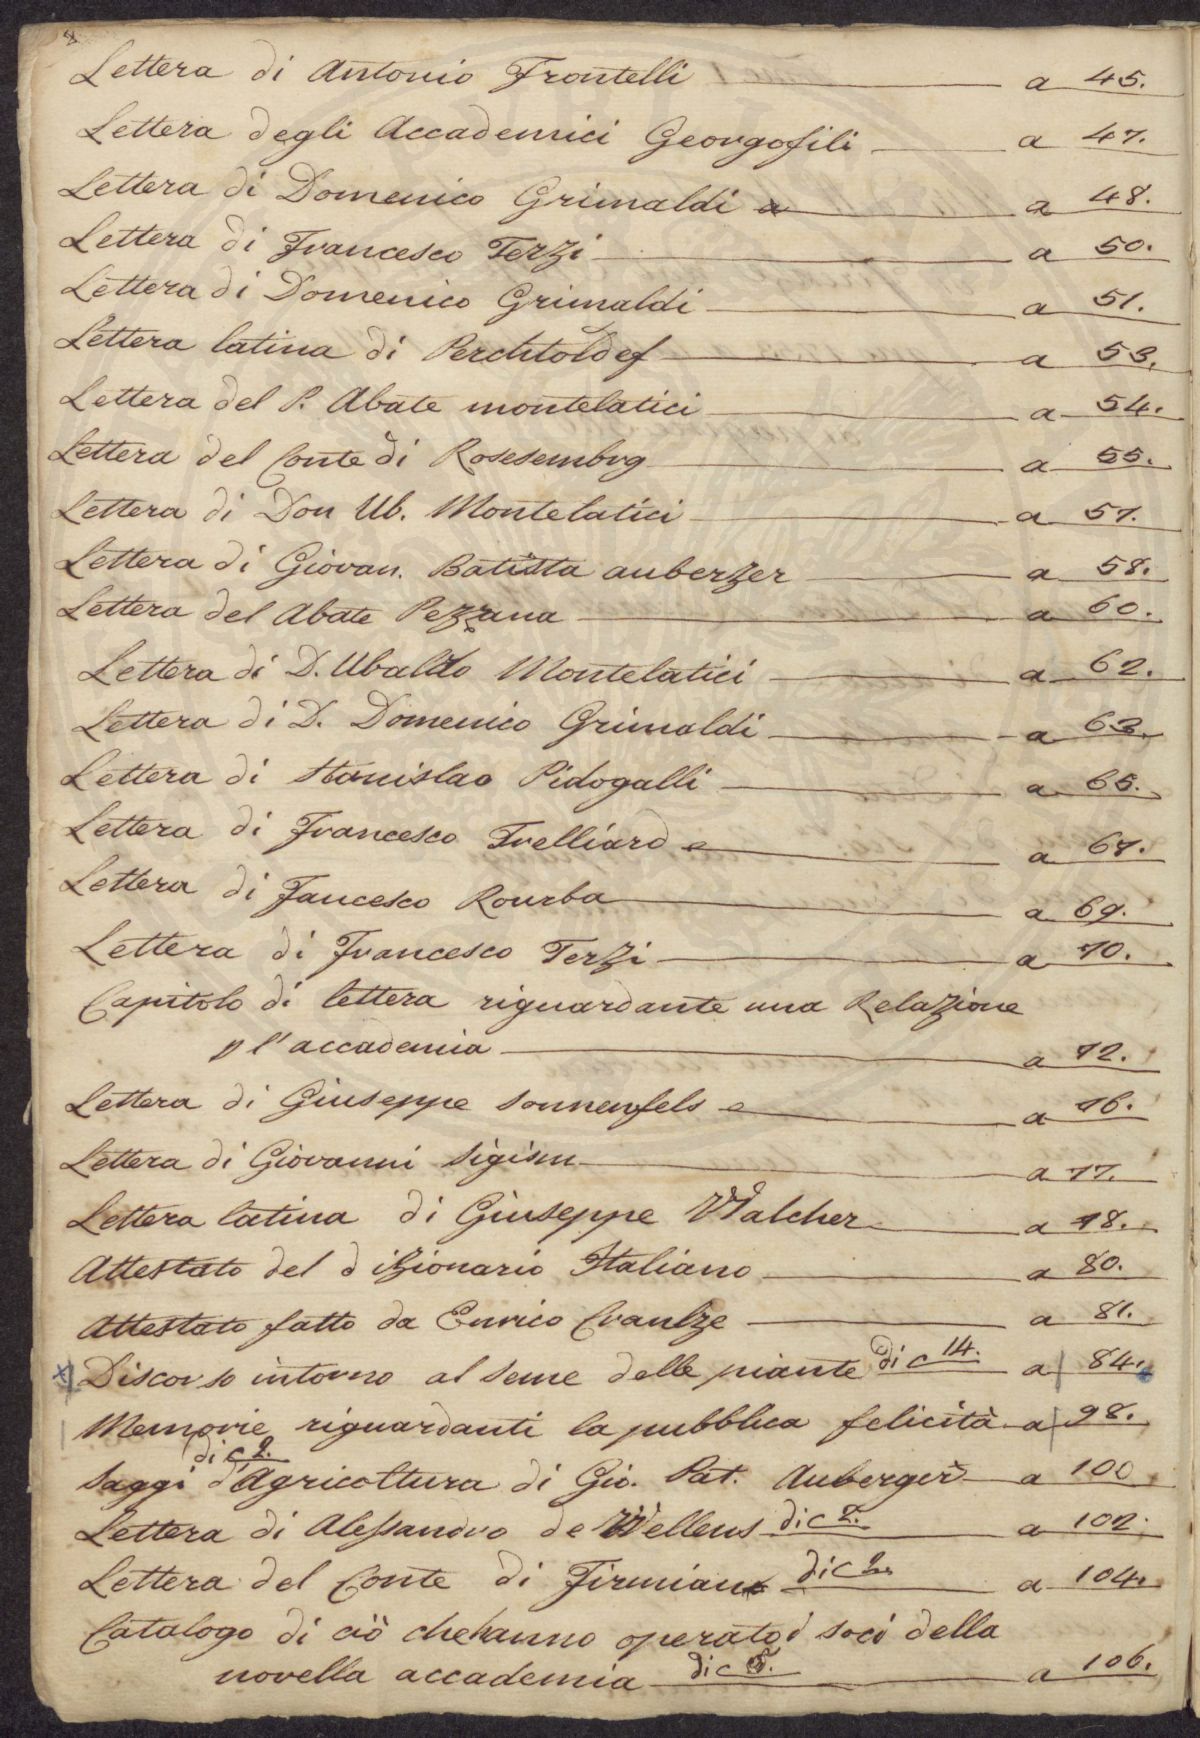 8
Lettera di Antonio Frontelli a 45.
Lettera degli Accademici Georgofili a 47.
Lettera di Domenico Grimaldi a a 48.
Lettera di Francesco Terzi a 50.
Lettera di Domenico Grimaldi a 51.
Lettera latina di Perchtoldef a 53.
Lettera del P. Abate montelatici a 54.
Lettera del Conte di Rosesembrg a 55.
Lettera di Don Ub. Montelatici a 57.
Lettera di Giovan. Batista auberzer a 58.
Lettera del Abate Pezzana a 60.
Lettera di D. Ubaldo Montelatici a 62.
Lettera di D. Domenico Grimaldi a 63.
Lettera di Stanislao Pidogalli a 65.
Lettera di Francesco Trelliard a 67.
Lettera di Fancesco Rourba a 69.
Lettera di Francesco Terzi a 70.
Capitolo di lettera riguardante una Relazione
p l'accademia a 72.
Lettera di Giuseppe Sonnenfels a 76.
Lettera di Giovanni Sigism a 77.
Lettera latina di Giuseppe Walcher a 78.
Attestato del dizionario Italiano a 80.
Attestato fatto da Enrico Crantze a 81.
Discorso intorno al seme delle piante di c 14. a 84.
Memorie riguardanti la pubblica felicità a 98.
di c 2.
Saggi d'Agricoltura di Gio. Pat. Auberger a 100
Lettera di Alessandro de Wellens di c 2. a 102.
Lettera del Conte di Firmian di c 2. a 104.
Catalogo di ciò che hanno operato i soci della
novella accademia di c 5. a 106.